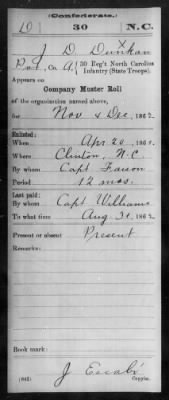 (Confederate.)
D 30 N.C.
J D Dunkan
Pvt, Co. A, 30 Reg't North Carolina
Infantry (State Troops).
Appears on
Company Muster Roll
of the organization named above,
for Nov & Dec, 1862
Enlisted:
When Apr 20, 186
Where Clinton, N.C.
By whom Capt Faison
Period 12 mos.
Last paid:
By whom Capt Williams
To what time Aug 31, 1862.
Present or absent Present
Remarks:
Book mark:
J
(642) Copyist.